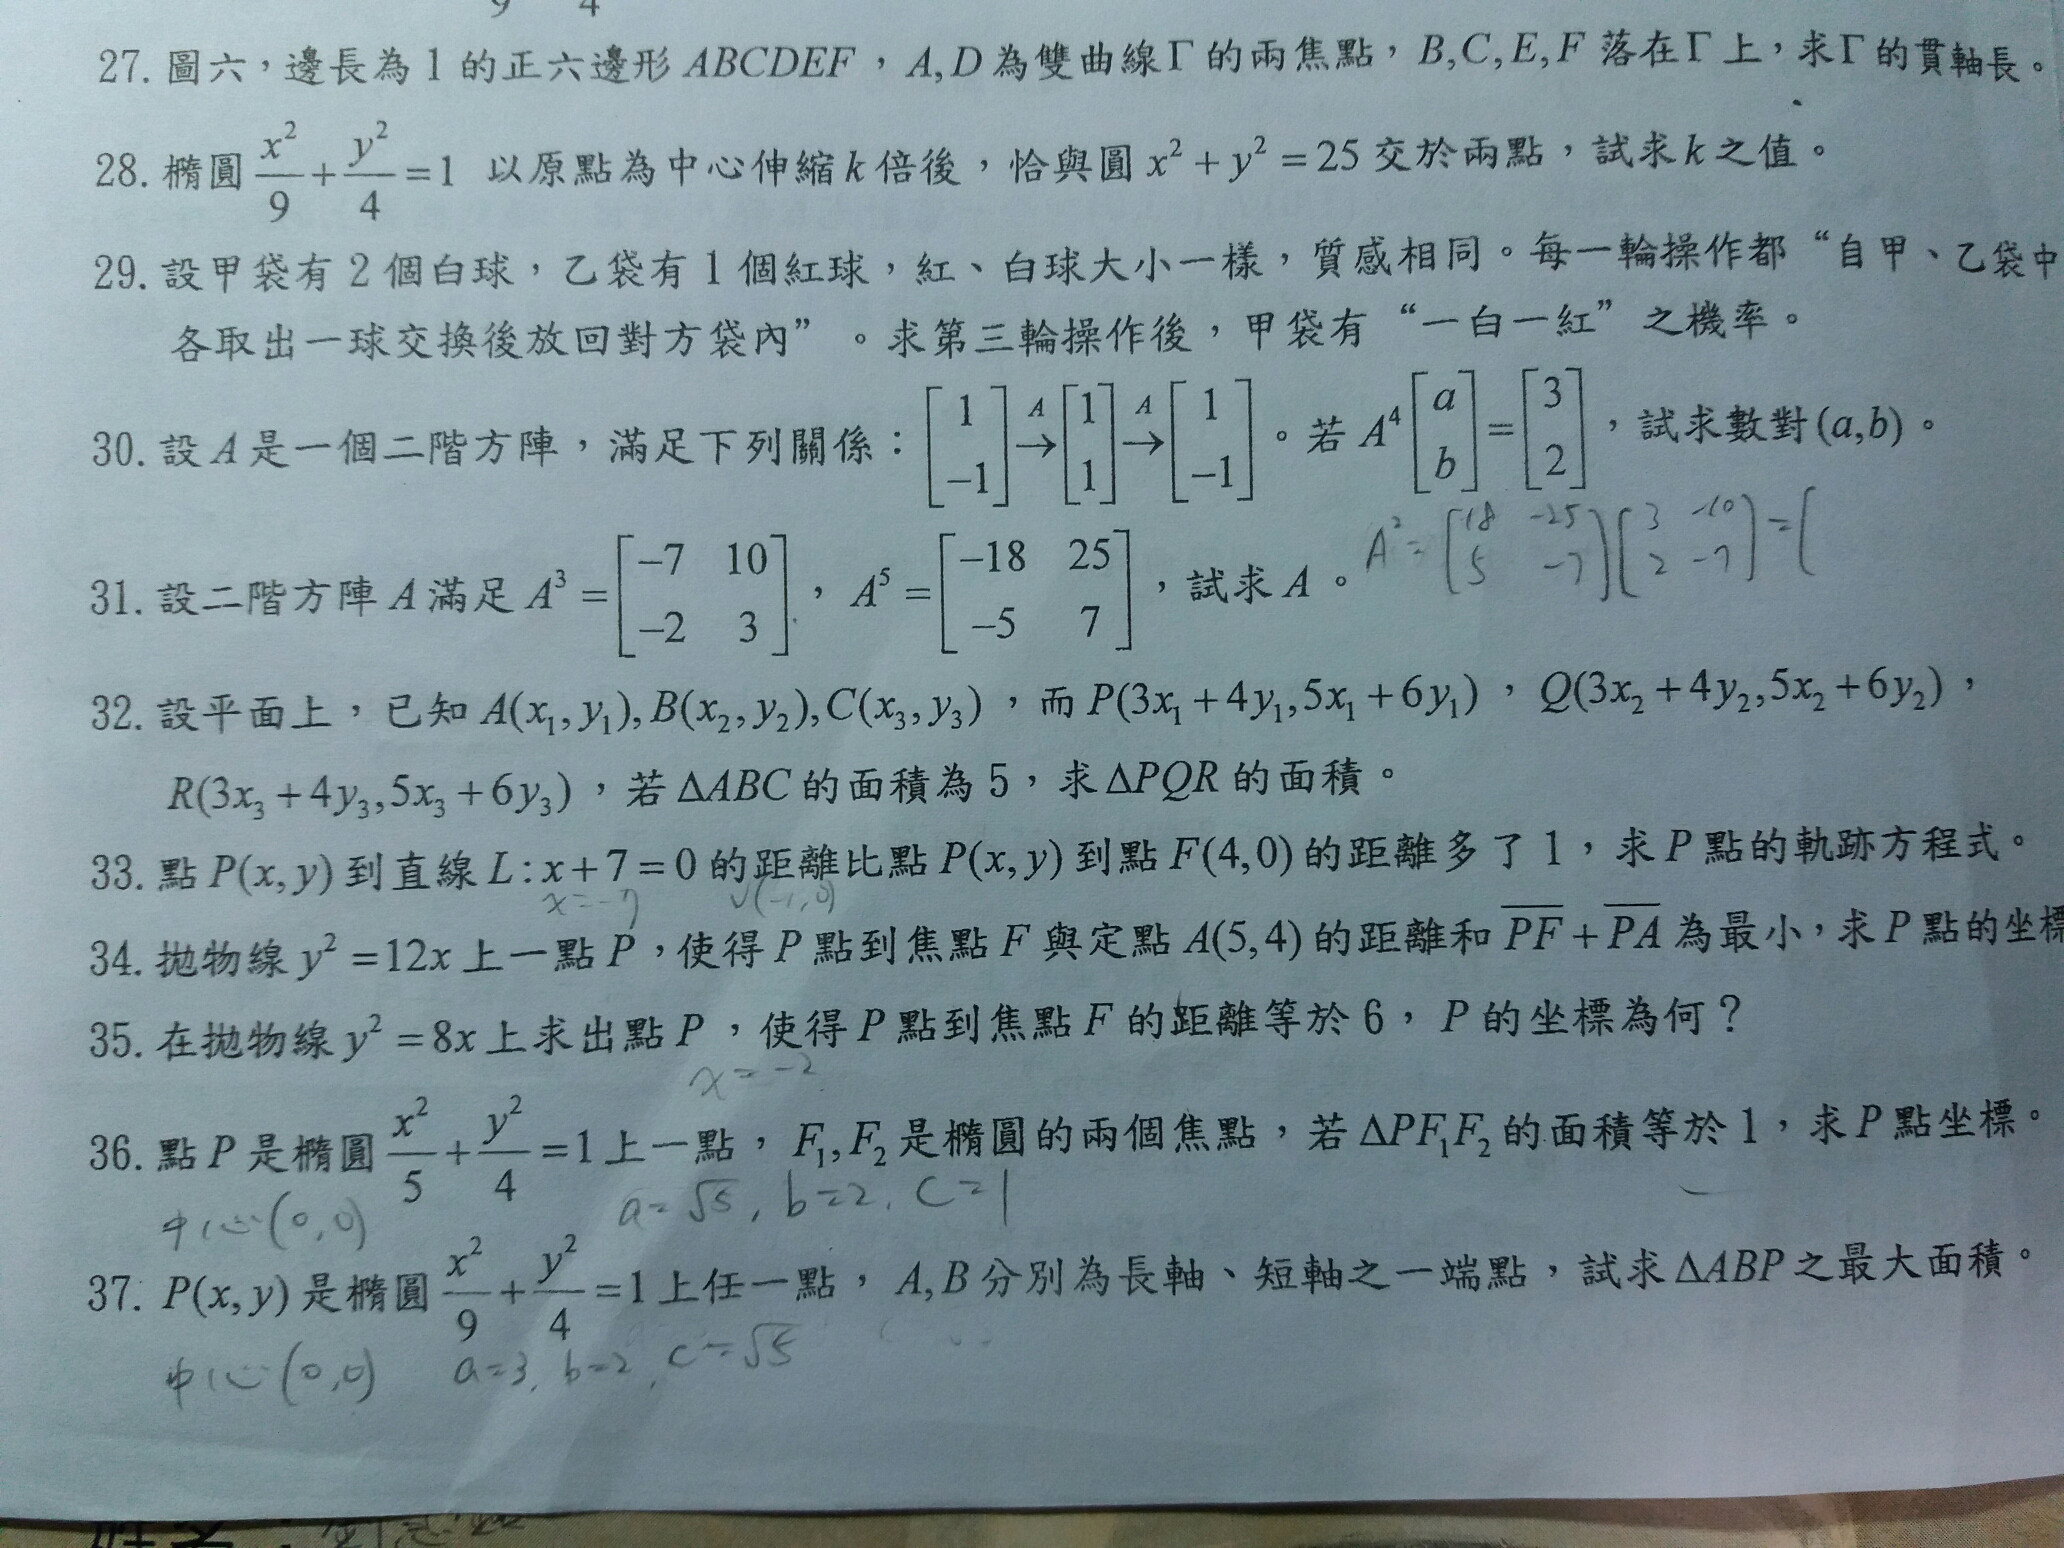 9 4
27. 圖六，邊長為 1 的正六邊形 ABCDEF，A,D 為雙曲線 Γ 的兩焦點，B,C,E,F 落在 Γ 上，求 Γ 的貫軸長。
28. 橢圓 x²/9 + y²/4 = 1 以原點為中心伸縮 k 倍後，恰與圓 x² + y² = 25 交於兩點，試求 k 之值。
29. 設甲袋有 2 個白球，乙袋有 1 個紅球，紅、白球大小一樣，質感相同。每一輪操作都“自甲、乙袋中
各取出一球交換後放回對方袋內”。求第三輪操作後，甲袋有“一白一紅”之機率。
30. 設 A 是一個二階方陣，滿足下列關係：[1; -1] →A [1; 1] →A [1; -1]。若 A⁴ [a; b] = [3; 2]，試求數對(a,b)。
A² = [18 -25; 5 -7] [3 -10; 2 -7] = [
31. 設二階方陣 A 滿足 A³ = [-7 10; -2 3]，A⁵ = [-18 25; -5 7]，試求 A。
32. 設平面上，已知 A(x₁,y₁),B(x₂,y₂),C(x₃,y₃)，而 P(3x₁+4y₁,5x₁+6y₁)，Q(3x₂+4y₂,5x₂+6y₂)，
R(3x₃+4y₃,5x₃+6y₃)，若 ΔABC 的面積為 5，求 ΔPQR 的面積。
33. 點 P(x,y) 到直線 L:x+7=0 的距離比點 P(x,y) 到點 F(4,0) 的距離多了 1，求 P 點的軌跡方程式。
x=-7 V(-1,0)
34. 拋物線 y² = 12x 上一點 P，使得 P 點到焦點 F 與定點 A(5,4) 的距離和 P̅F̅ + P̅A̅ 為最小，求 P 點的坐標
35. 在拋物線 y² = 8x 上求出點 P，使得 P 點到焦點 F 的距離等於 6，P 的坐標為何？
x=-2
36. 點 P 是橢圓 x²/5 + y²/4 = 1 上一點，F₁,F₂ 是橢圓的兩個焦點，若 ΔPF₁F₂ 的面積等於 1，求 P 點坐標。
中心(0,0) a=√5, b=2, c=1
37. P(x,y) 是橢圓 x²/9 + y²/4 = 1 上任一點，A,B 分別為長軸、短軸之一端點，試求 ΔABP 之最大面積。
中心(0,0) a=3, b=2, c=√5